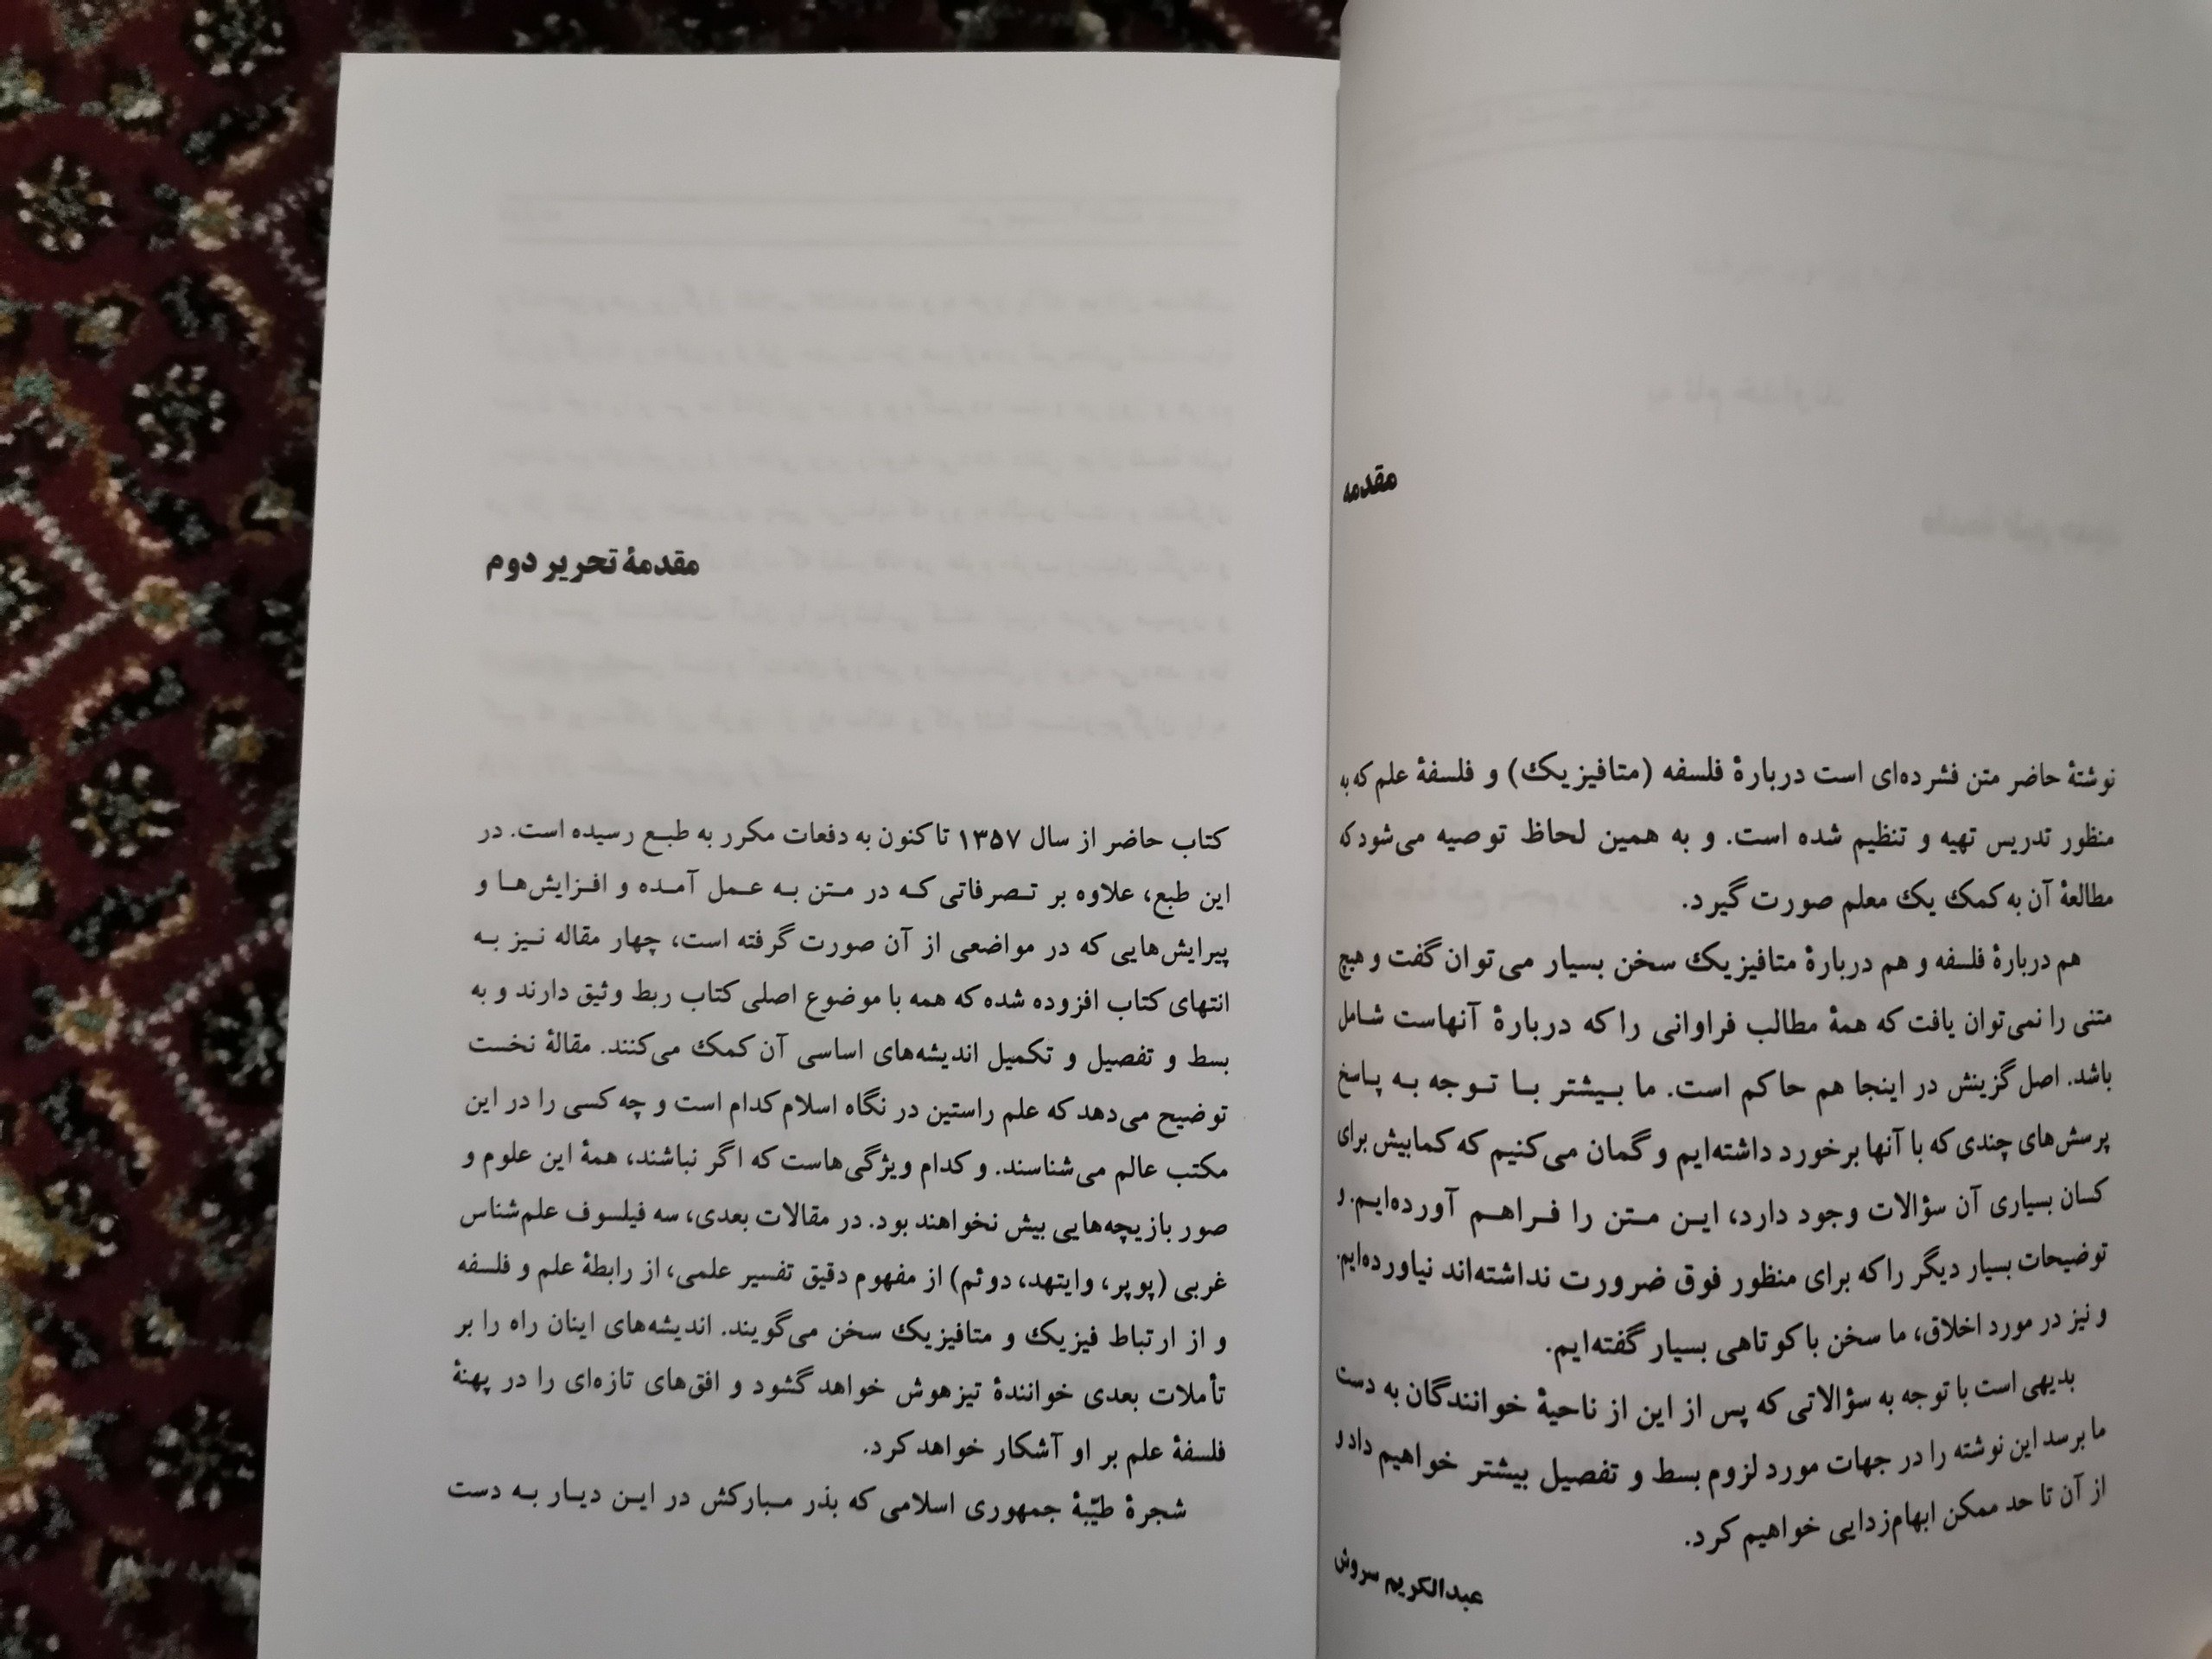 مقدمه
نوشتهٔ حاضر متن فشرده‌ای است دربارهٔ فلسفه (متافیزیک) و فلسفهٔ علم که به
منظور تدریس تهیه و تنظیم شده است. و به همین لحاظ توصیه می‌شود که
مطالعهٔ آن به کمک یک معلم صورت گیرد.
هم دربارهٔ فلسفه و هم دربارهٔ متافیزیک سخن بسیار می‌توان گفت و هیچ
متنی را نمی‌توان یافت که همهٔ مطالب فراوانی را که دربارهٔ آنهاست شامل
باشد. اصل گزینش در اینجا هم حاکم است. ما بیشتر با توجه به پاسخ
پرسش‌های چندی که با آنها برخورد داشته‌ایم و گمان می‌کنیم که کمابیش برای
کسان بسیاری آن سؤالات وجود دارد، این متن را فراهم آورده‌ایم. و
توضیحات بسیار دیگر را که برای منظور فوق ضرورت نداشته‌اند نیاورده‌ایم.
و نیز در مورد اخلاق، ما سخن با کوتاهی بسیار گفته‌ایم.
بدیهی است با توجه به سؤالاتی که پس از این از ناحیهٔ خوانندگان به دست
ما برسد این نوشته را در جهات مورد لزوم بسط و تفصیل بیشتر خواهیم داد و
از آن تا حد ممکن ابهام‌زدایی خواهیم کرد.
عبدالکریم سروش
مقدمهٔ تحریر دوم
کتاب حاضر از سال ۱۳۵۷ تاکنون به دفعات مکرر به طبع رسیده است. در
این طبع، علاوه بر تصرفاتی که در متن به عمل آمده و افزایش‌ها و
پیرایش‌هایی که در مواضعی از آن صورت گرفته است، چهار مقاله نیز به
انتهای کتاب افزوده شده که همه با موضوع اصلی کتاب ربط وثیق دارند و به
بسط و تفصیل و تکمیل اندیشه‌های اساسی آن کمک می‌کنند. مقالهٔ نخست
توضیح می‌دهد که علم راستین در نگاه اسلام کدام است و چه کسی را در این
مکتب عالم می‌شناسند. و کدام ویژگی‌هاست که اگر نباشند، همهٔ این علوم و
صور بازیچه‌هایی بیش نخواهند بود. در مقالات بعدی، سه فیلسوف علم‌شناس
غربی (پوپر، وایتهد، دوئم) از مفهوم دقیق تفسیر علمی، از رابطهٔ علم و فلسفه
و از ارتباط فیزیک و متافیزیک سخن می‌گویند. اندیشه‌های اینان راه را بر
تأملات بعدی خوانندهٔ تیزهوش خواهد گشود و افق‌های تازه‌ای را در پهنهٔ
فلسفهٔ علم بر او آشکار خواهد کرد.
شجرهٔ طیّبهٔ جمهوری اسلامی که بذر مبارکش در این دیار به دست